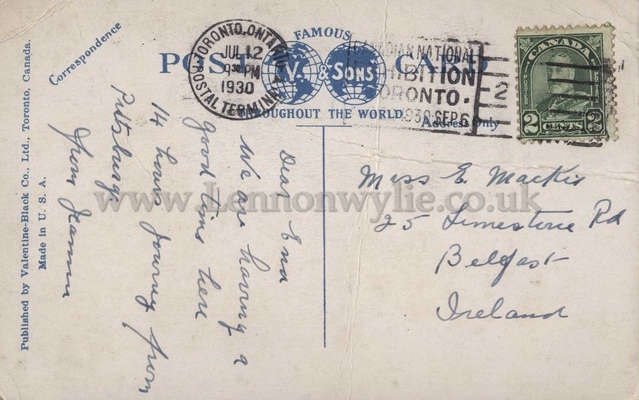 Published by Valentine-Black Co., Ltd., Toronto, Canada.
Made in U. S. A.
Correspondence
FAMOUS
POST CARD
V. & SONS
THROUGHOUT THE WORLD.
Address Only
TORONTO, ONTARIO
JUL 12
9 30 PM
1930
POSTAL TERMINAL
CANADIAN NATIONAL
EXHIBITION
TORONTO.
1930 SEP 6
2
CANADA
2 CENTS 2
Dear Ena
We are having a
good time here
14 hours journey from
Pittsburg
from Jeannie
Miss E. Mackie
25 Limestone Rd
Belfast
Ireland
www.Lennonwylie.co.uk